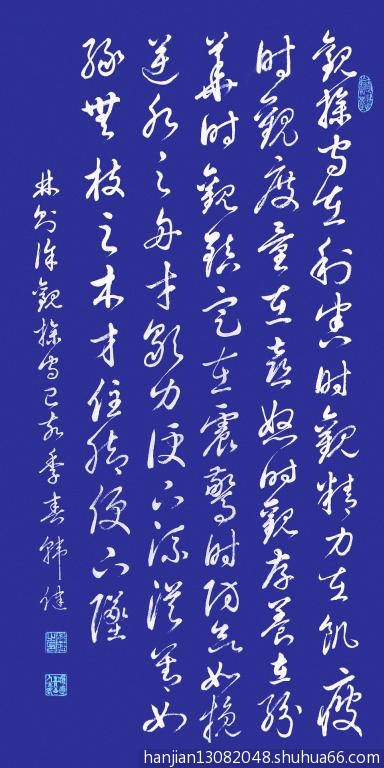 觀操守在利害时觀精力在飢疲
时觀度量在喜怒时觀存養在紛
華时觀鎮定在震驚时防欲如挽
逆水之舟才歇力便下流從善如
緣無枝之木才住脚便下墜
林则徐觀操守己亥季春韩健
hanjian13082048.shuhua66.com